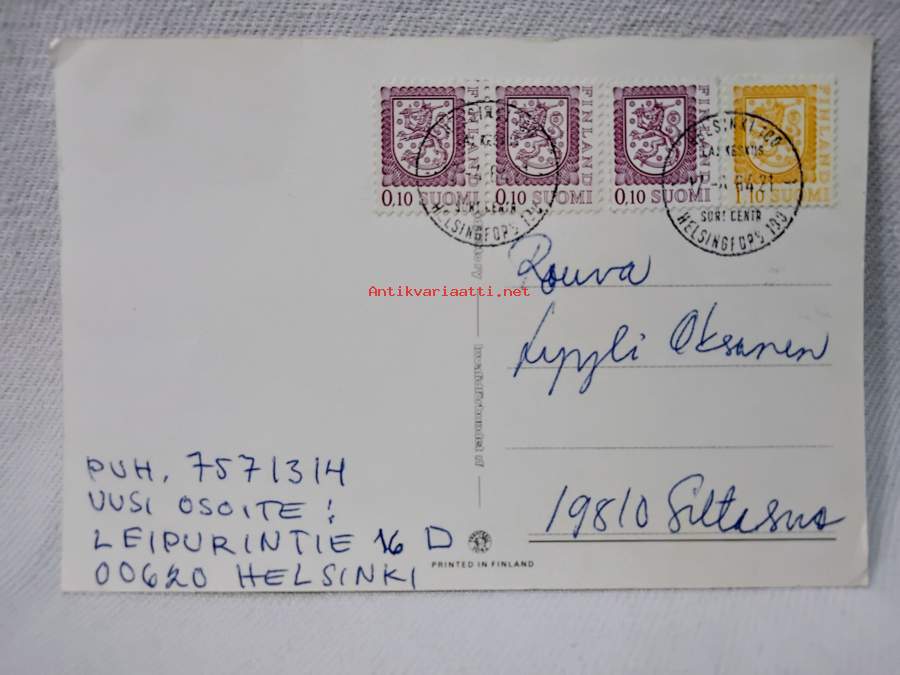 FINLAND FINLAND FINLAND FINLAND
0,10 SUOMI 0,10 SUOMI 0,10 SUOMI 1,10 SUOMI
HELSINKI 100
LAJ KESKUS
SORT CENTR
HELSINGFORS 100
Rouva
Antikvariaatti.net
Oksanen
PUH. 7571314
UUSI OSOITE!
19810 Siltasuo
LEIPURINTIE 16 D
00620 HELSINKI
PRINTED IN FINLAND